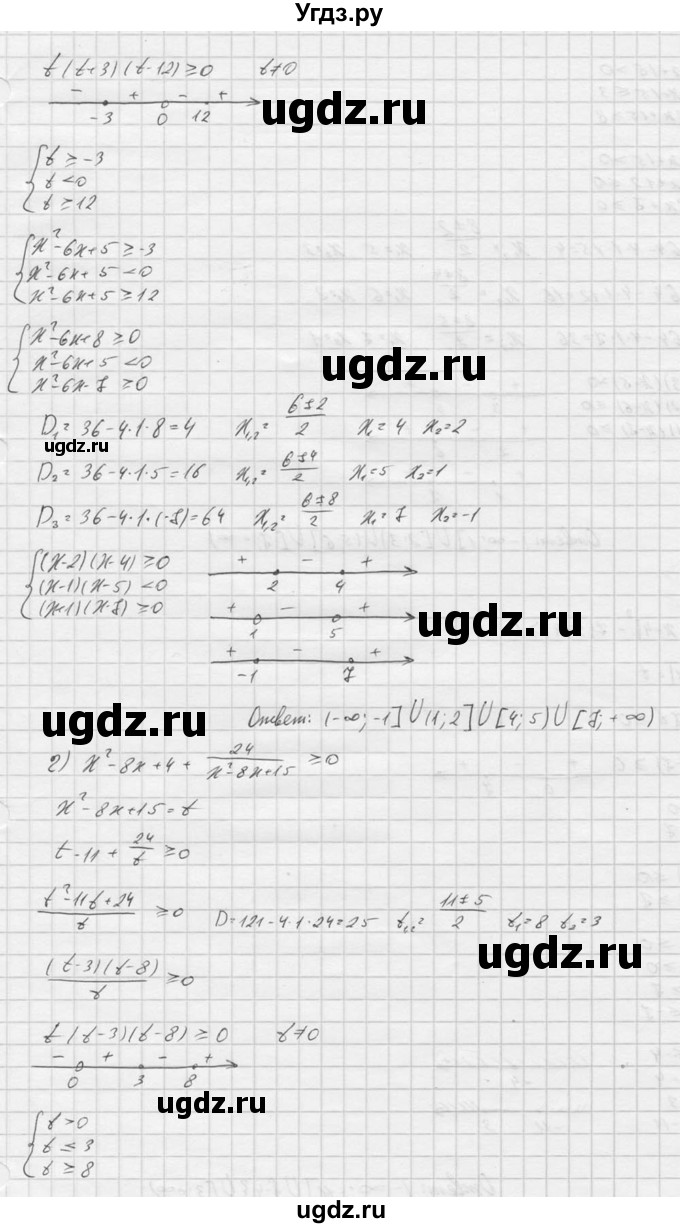 Угдз.ру
t(t+3)(t-12)≥0 t≠0
- + - +
-3 0 12
ugdz.ru
{t ≥ -3
t < 0
t ≥ 12
ugdz.ru
{x²-6x+5 ≥ -3
x²-6x+5 < 0
x²-6x+5 ≥ 12
{x²-6x+8 ≥ 0
x²-6x+5 < 0
x²-6x-7 ≥ 0
ugdz.ru
D₁ = 36-4·1·8 = 4 x₁,₂ = (6±2)/2 x₁ = 4 x₂ = 2
D₂ = 36-4·1·5 = 16 x₁,₂ = (6±4)/2 x₁ = 5 x₂ = 1
ugdz.ru
D₃ = 36-4·1·(-7) = 64 x₁,₂ = (6±8)/2 x₁ = 7 x₂ = -1
{(x-2)(x-4) ≥ 0
(x-1)(x-5) < 0
(x+1)(x-7) ≥ 0
+ - +
2 4
+ - +
1 5
+ - +
-1 7
ugdz.ru
Ответ: (-∞; -1]∪(1; 2]∪[4; 5)∪[7; +∞)
ugdz.ru
2) x²-8x+4 + 24/(x²-8x+15) ≥ 0
x²-8x+15 = t
ugdz.ru
t-11 + 24/t ≥ 0
(t²-11t+24)/t ≥ 0 D = 121-4·1·24 = 25 t₁,₂ = (11±5)/2 t₁ = 8 t₂ = 3
ugdz.ru
((t-3)(t-8))/t ≥ 0
t(t-3)(t-8) ≥ 0 t≠0
- + - +
0 3 8
ugdz.ru
{t > 0
t ≤ 3
t ≥ 8
ugdz.ru